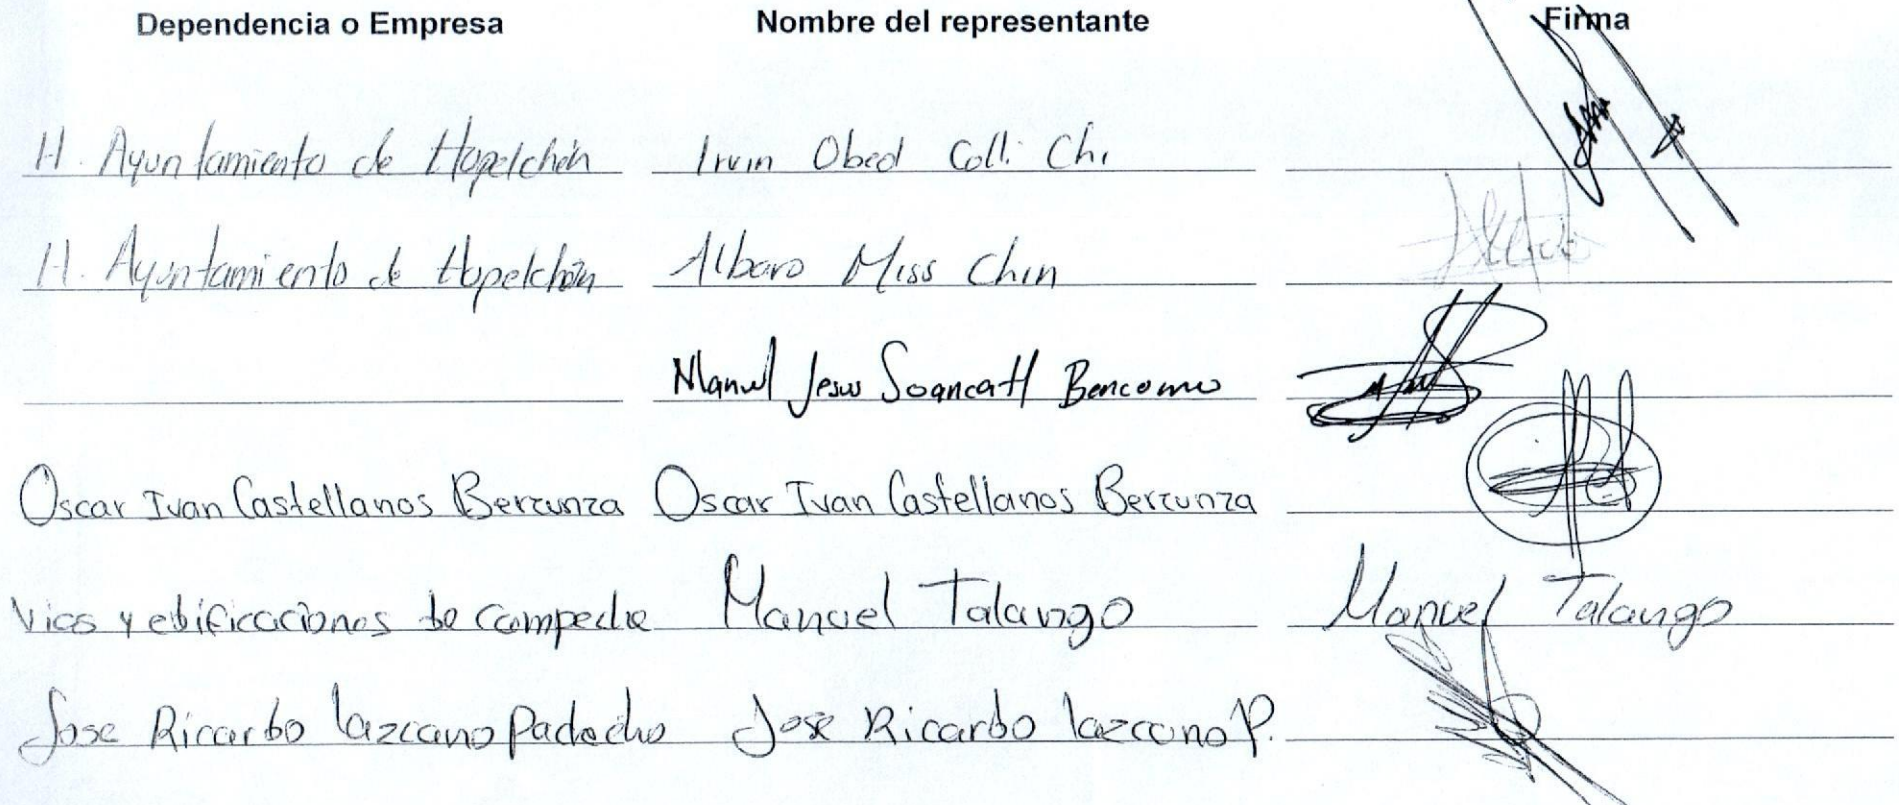 Dependencia o Empresa Nombre del representante Firma
H. Ayuntamiento de Hopelchén Irvin Obed Coll. Chi
H. Ayuntamiento de Hopelchén Albaro Miss Chin
Manuel Jesus Soancatl Bencomo
Oscar Ivan Castellanos Berzunza Oscar Ivan Castellanos Berzunza
Vias y edificaciones de campeche Manuel Talango Manuel Talango
Jose Ricardo lazcano Padecho Jose Ricardo lazcano P.